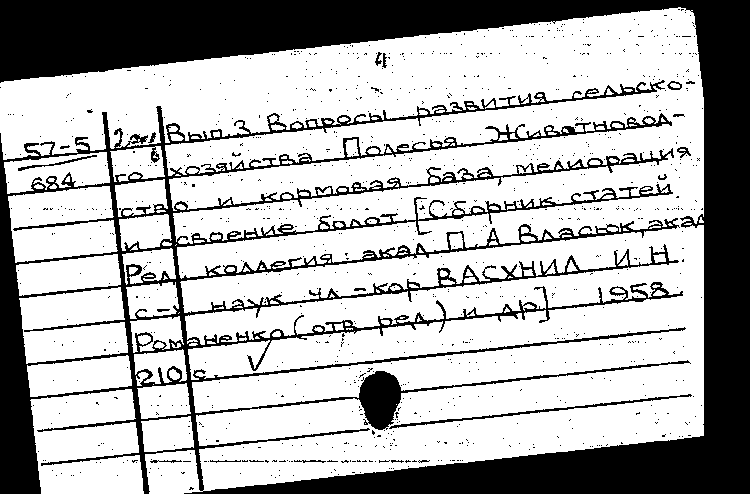 4
57-5 2 экз Вып. 3 Вопросы развития сельско-
684 6 го хозяйства Полесья. Животновод-
ство и кормовая база, мелиорация
и освоение болот [Сборник статей
Ред. коллегия: акад. П. А Власюк, акад
с-х наук чл-кор ВАСХНИЛ И. Н.
Романенко (отв ред.) и др] 1958.
210 с.